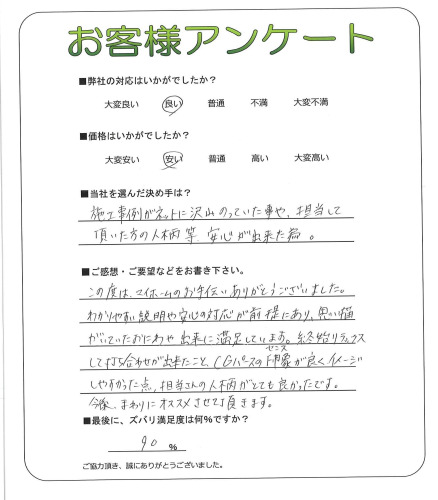 お客様アンケート
■弊社の対応はいかがでしたか？
大変良い 良い 普通 不満 大変不満
■価格はいかがでしたか？
大変安い 安い 普通 高い 大変高い
■当社を選んだ決め手は？
施工事例がネットに沢山のっていた事や、担当して
頂いた方の人柄等、安心が出来た為。
■ご感想・ご要望などをお書き下さい。
この度は、マイホームのお手伝いありがとうございました。
わかりやすい説明や安心の対応が前提にあり、思い描
がいていたおにわや出来に満足しています。終始リラックス
して打ち合わせが出来たこと、CGパースの印象が良くイメージ
センス
しやすかった点、担当さんの人柄がとても良かったです。
今後、まわりにオススメさせて頂きます。
■最後に、ズバリ満足度は何%ですか？
90 %
ご協力頂き、誠にありがとうございました。